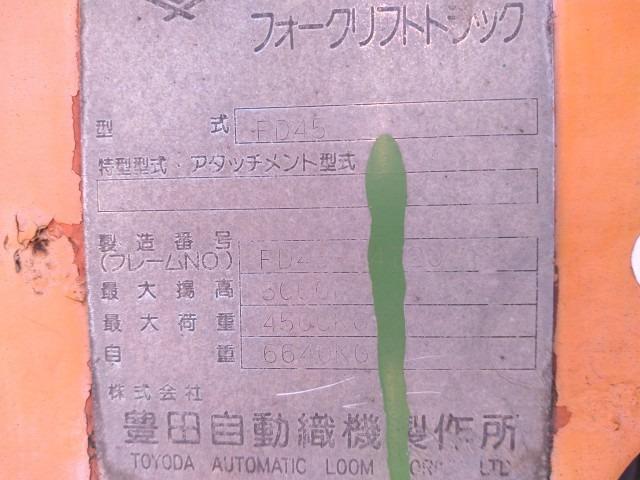 フォークリフトトラック
型 式 FD45
特型型式・アタッチメント型式
製造番号
(フレームNO.) FD4
最大揚高 3000
最大荷重 4500KG
自 重 6640KG
株式会社
豊田自動織機製作所
TOYODA AUTOMATIC LOOM LTD